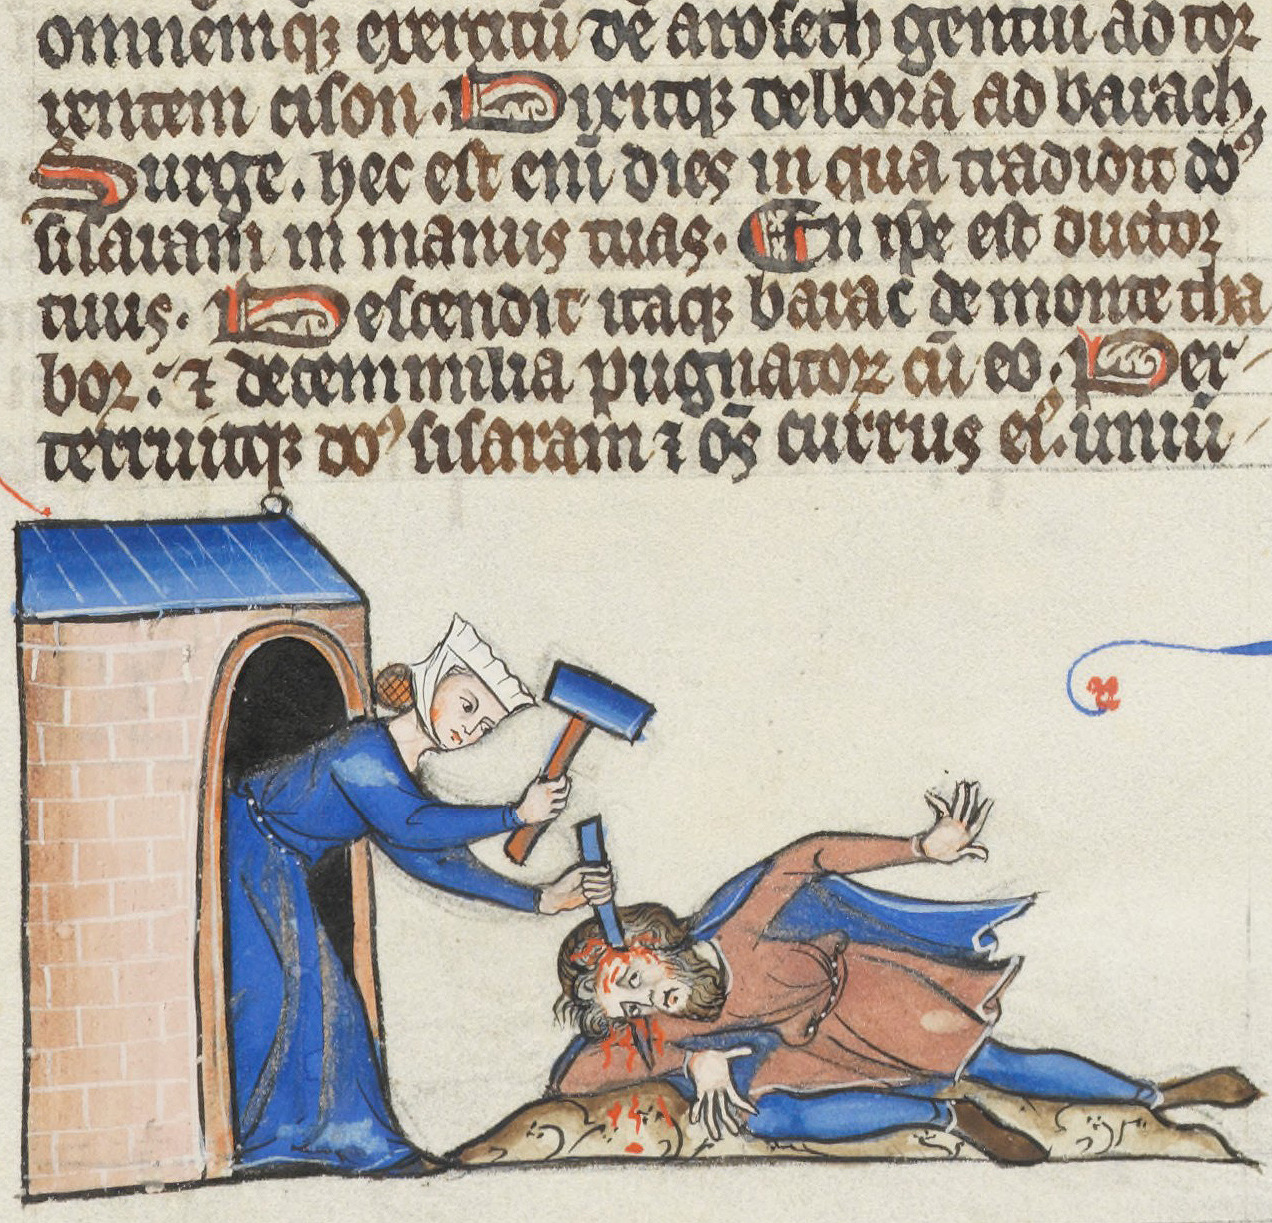 omnēmqꝫ exercitū de aroseth gentiū ad tor
rentem cison. Dixitqꝫ delbora ad barach,
Surge. hec est enī dies in qua tradidit dō⁹
sisaram in manus tuas. En ip̄e est ductor
tuus. Descendit itaqꝫ barac de monte tha
bor. ⁊ decem milia pugnatorꝝ cū eo. Per
terruitqꝫ do⁹ sisaram ⁊ om̄s currus ei⁹. uniū